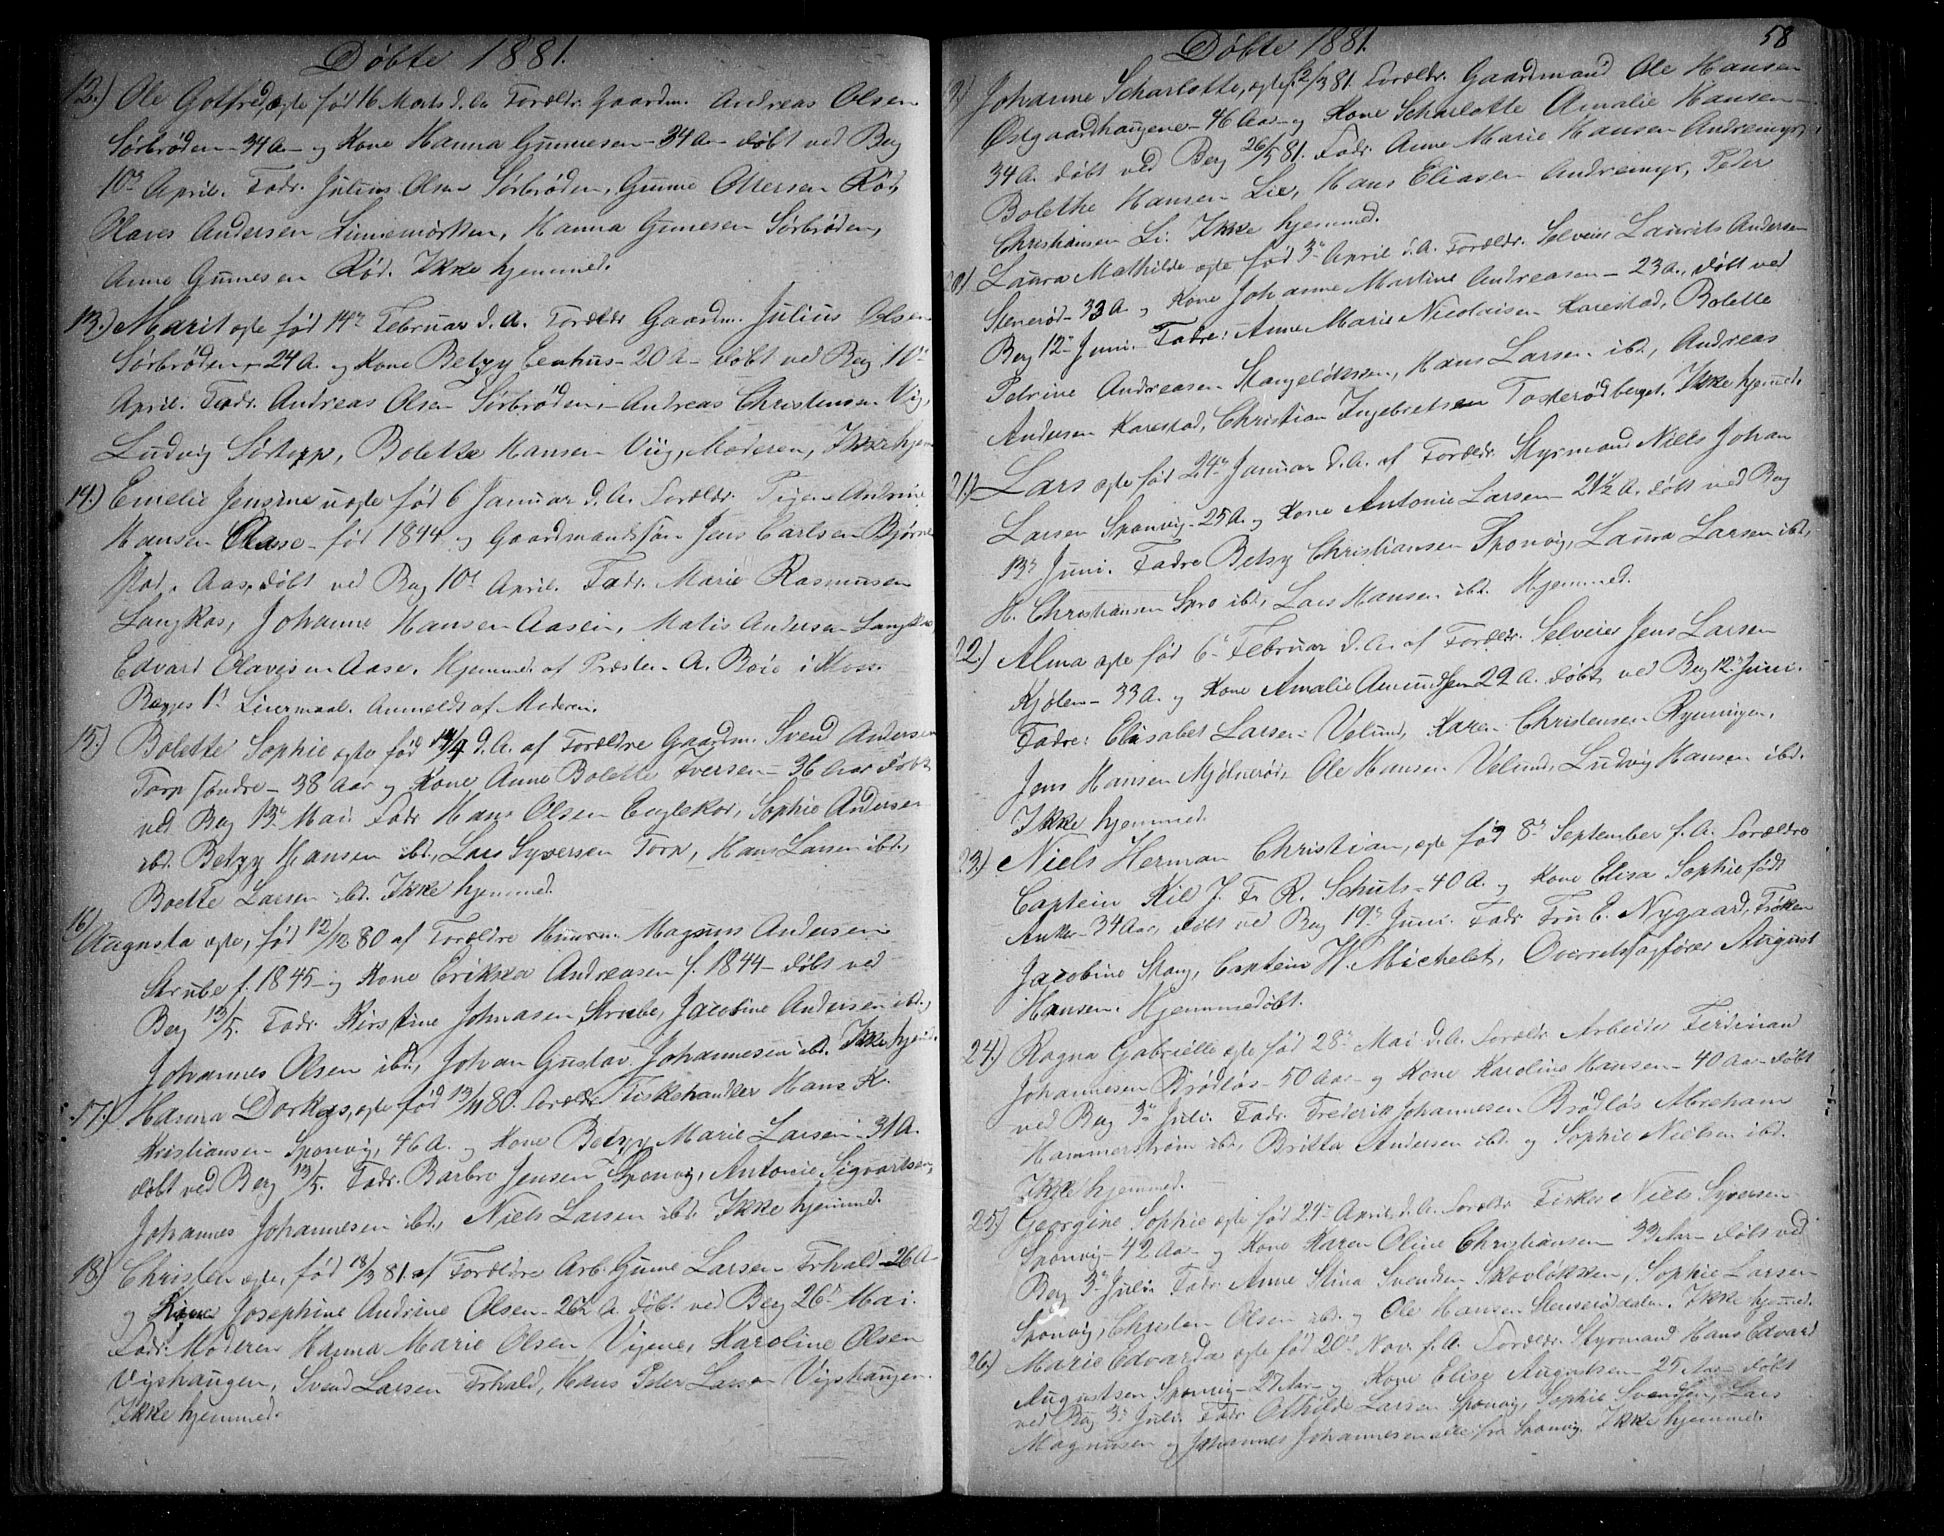 Døbte 1881.
12.) Ole Gotfred, ægte født 16 Marts d.A. Forældr. Gaardm. Andreas Olsen
Sørbrøden - 34 A - og Kone Hanna Gunnesen - 34 A - døbt ved Berg
10de April. Fadr. Julius Olsen Sørbrøden, Gunne Ottersen Rød,
Olaves Andersen Linnemørken, Hanna Gunnesen Sørbrøden,
Anne Gunnesen Rød. Ikke hjemmed.
13.) Marit ægte fød 14de Februar d.A. Forældr Gaardm. Julius Olsen
Sørbrøden - 24 A. og Kone Betzy Eenhus - 20 A - døbt ved Berg 10de
April. Fadr. Andreas Olsen Sørbrøden, - Andreas Christensen Vig,
Ludvig Sørtorp, Bolette Hansen Viig, Moderen, Ikke hjem
14.) Emelie Jensine uægte fød 6 Januar d.A. Forældr. Pigen Andrine
Hansen Aase - fød 1844 og Gaardmandssøn Jens Carlsen Bjørne
stad, Aas, døbt ved Berg 10de April. Fadr. Marie Rasmusen
Langkas, Johanne Hansen Aasen, Matis Andersen Langkas,
Edvard Olavesen Aase. Hjemmed. af Præsten A. Boie i Moss.
Begges 1ste Leiermaal. Anmeldt af Moderen.
15.) Bolette Sophie ægte fød 14/4 d.A. af Forældre Gaardm. Svend Andersen
Torp søndre - 38 Aar og Kone Anne Bolette Iversen - 36 Aar døbt
ved Berg 13de Mai Fadr Hans Olsen Englekor, Sophie Andersen
ibd. Betzy Hansen ibd., Lars Syversen Torp, Hans Larsen ibd.,
Boette Larsen ibd. Ikke hjemmed.
16.) Augusta ægte, fød 12/12 80 af Forældre Husm. Magnus Andersen
Strube f. 1845 - og Kone Erikka Andreasen f. 1844 - døbt ved
Berg 13/5. Fadr. Kirstine Johnasen Strube, Jacobine Andersen ibd.,
Johannes Olsen ibd., Johan Gustav Johannesen ibd. Ikke hjemd.
17.) Hanna Dorkas, ægte fød 13/11 80. Forældr. Fiskehandler Hans K.
Kristiansen Sponvig, 46 A. og Kone Betzy Marie Larsen - 31 A.
døbt ved Berg 13/5. Fadr. Barbro Jensen Sponvig, Antonie Sigvartsen,
Johannes Johannesen ibd., Niels Larsen ibd. Ikke hjemmed.
18.) Christen ægte, fød 18/3 81 af Forældre Arb. Gunne Larsen Frhald - 26 A -
og Kone Josephine Andrine Olsen - 26 1/2 A. døbt ved Berg 26de Mai.
Fadr. Moderen Hanna Marie Olsen Vigene, Karoline Olsen
Vigshaugen, Svend Larsen Frhald, Hans Peter Larsen Vigshaugen.
Ikke hjemmed.
58
Døbte 1881.
9.) Johanne Scharlotte, ægte f. 2/3 81. Forældr. Gaardmand Ole Hansen
Østgaardhaugene - 46 Aar - og Kone Scharlotte Amalie Hansen -
34 A. døbt ved Berg 26/5 81. Fadr. Anne Marie Hansen Andremyr,
Bolethe Hansen Lie, Hans Eliasen Andremyr, Peder
Christiansen Li. Ikke hjemmed.
20) Laura Mathilde ægte fød 3de April d.A. Forældr. Selveier Laurits Andersen
Stenerød - 33 A. og Kone Johanne Martine Andreasen - 23 A., døbt ved
Berg 12te Juni. Fadre: Anne Marie Nicolaisen Karestad, Bolette
Petrine Andreasen Stangeløkken, Hans Larsen ibd., Andreas
Andersen Karestad, Christian Ingebretsen Tosterødberget. Ikke hjemd.
21.) Lars ægte fød 24de Januar d.A. af Forældr. Styrmand Niels Johan
Larsen Sponvig - 25 A. og Kone Antonie Larsen - 21 1/2 A. døbt ved Berg
13de Juni. Fadre Betsy Christiansen Sponvig, Laura Larsen ibd.,
H. Christiansen Spro ibd., Lars Hansen ibd. Hjemmed.
22.) Alma ægte fød 6te Februar d.A. af Forældr. Selveier Jens Larsen
Kjølen - 33 A. og Kone Amalie Amundsen 29 A. døbt ved Berg 12te Juni.
Fadre: Elisabet Larsen Velund, Karen Christensen Ryeningen,
Jens Hansen Mjølnerød, Ole Hansen Velund, Ludvig Hansen ibd.
Ikke hjemmed.
23.) Niels Herman Christian, ægte fød 8de September f.A. Forældre
Captein Kil J. Fr. R. Schuts - 40 A. og Kone Elisa Sophie født
Anker - 34 Aar, døbt ved Berg 19de Juni. Fadr. Fru E. Nygaard, Frøken
Jacobine Stang, Captein W. Michelet, Overretssagfører August
Hansen. Hjemmedøbt.
24.) Ragna Gabrielle ægte fød 28de Mai d.A. Forældr. Arbeider Ferdinan
Johannesen Brødløs - 50 Aar - og Kone Karoline Hansen - 40 Aar - døbt
ved Berg 3de Juli. Fadr. Frederik Johannesen Brødløs Abraham
Hammerstrøm ibd., Britta Andersen ibd. og Sophie Nielsen ibd.
Ikke hjemmed.
25.) Georgine Sophie ægte fød 27de April d.A. Forældr. Fisker Niels Syversen
Sponvig - 42 Aar - og Kone Karen Oline Christiansen - 33 Aar - døbt ved
Berg 3de Juli. Fadr. Anne Stina Svendsen Skovløkken, Sophie Larsen
Sponvig, Christen Olsen ibd. og Ole Hansen Stenserøddalen. Ikke hjemmed.
26.) Marie Edvarda ægte fød 20de Nov. f.A. Forældr. Styrmand Hans Edvard
Augustsen Sponvig - 27 Aar - og Kone Elise Augustsen - 25 Aar - døbt
ved Berg 3de Juli. Fadr. Othilde Larsen Sponvig, Sophie Svendsen, Lars
Magnusen og Johannes Johannesen alle fra Sponvig. Ikke hjemmed.